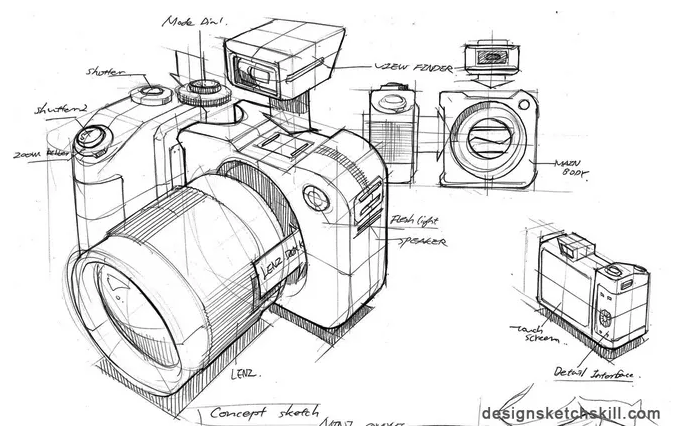 Mode Dial.
Shutter
Shutter2
VIEW FINDER
MAIN
BODY.
Flash light
SPEAKER
LENZ
LENZ.
Touch
Screen..
Detail Interface.
Concept sketch
designsketchskill.com